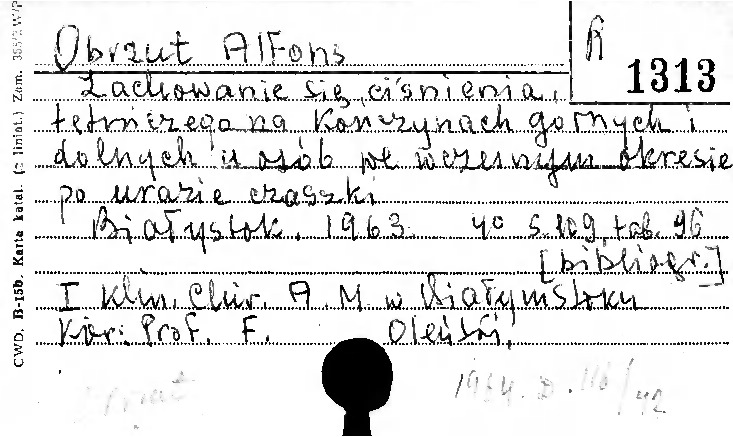 Obrzut Alfons
R
1313
Zachowanie się ciśnienia
tętniczego na kończynach górnych i
dolnych u osób we wczesnym okresie
po urazie czaszki
Białystok. 1963. 4° s. 109, tab. 96
[bibliogr.]
I Klin. Chir. A. M. w Białymstoku
Kier: Prof. F. Oleński.
1964. D. 116/42
CWD. B-15b. Karta katal. (z liniat.) Zam. 355/2 W/P